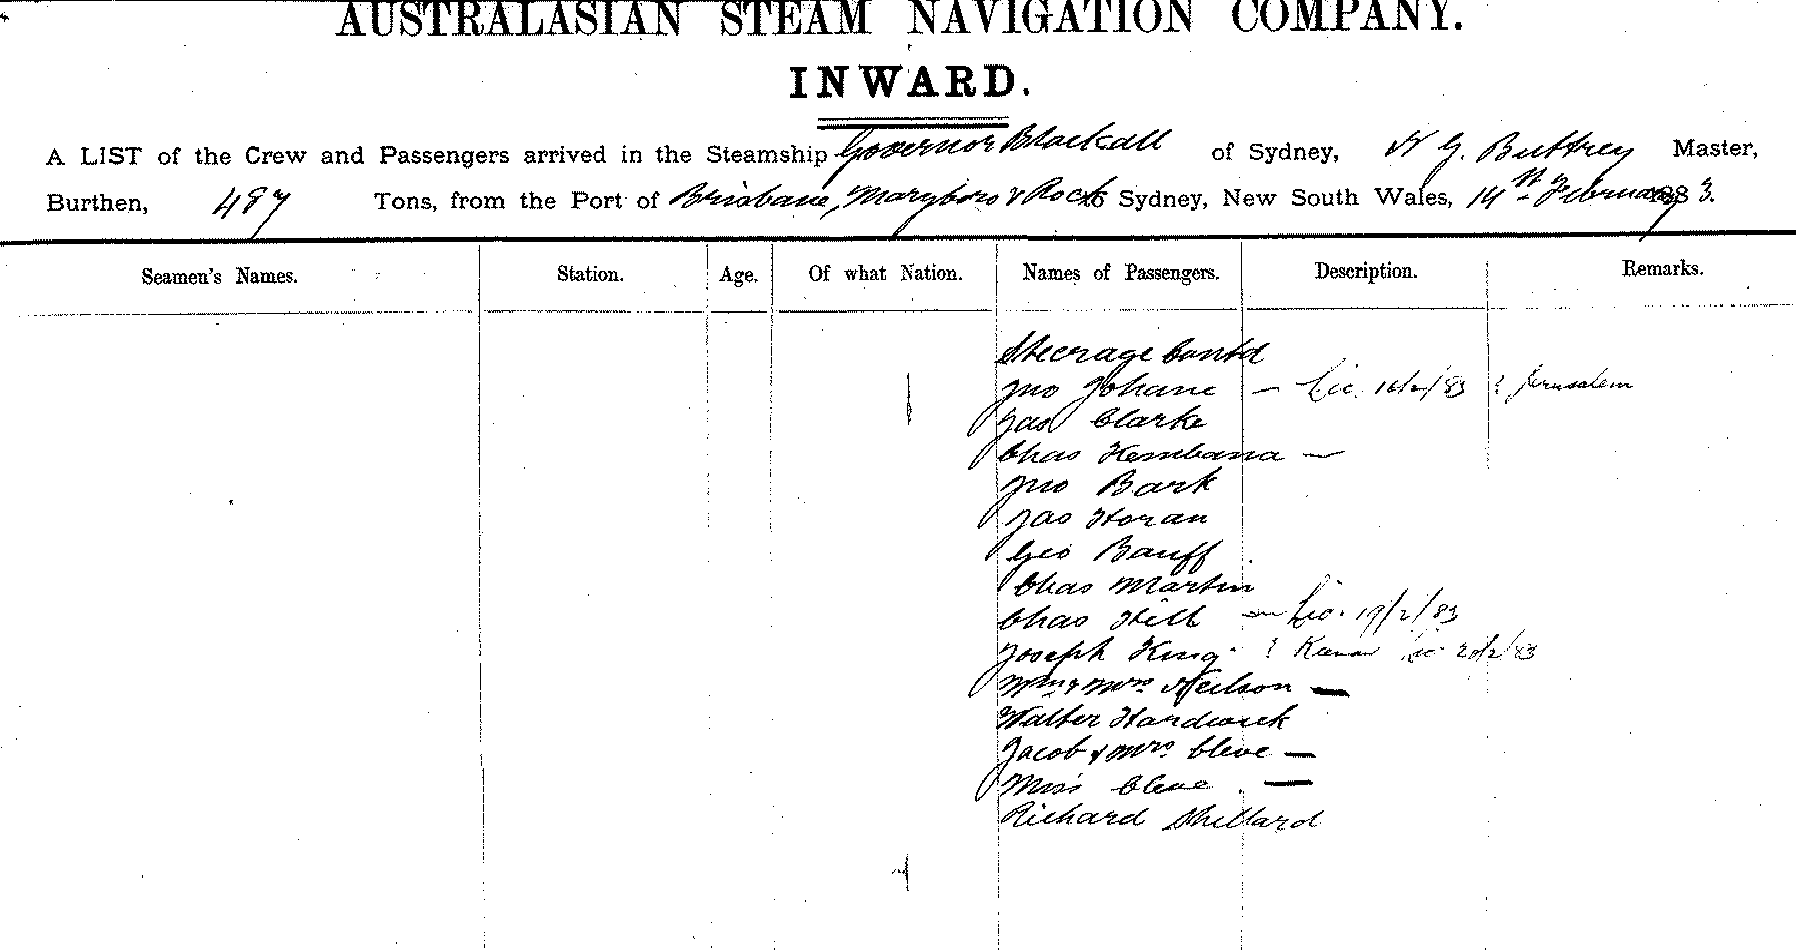 AUSTRALASIAN STEAM NAVIGATION COMPANY.
INWARD.
A LIST of the Crew and Passengers arrived in the Steamship Governor Blackall of Sydney, W G. Buttrey Master,
Burthen, 487 Tons, from the Port of Brisbane, Maryboro & Rock to Sydney, New South Wales, 14th February 1883.
Seamen's Names. Station. Age. Of what Nation. Names of Passengers. Description. Remarks.
Steerage Contd
Jno Johane — Lic. 16/2/83 ? Jerusalem
Jas Clarke
Chas Kembana —
Jno Bark
Jas Horan
Geo Banff
Chas Martin
Chas Hill — Lic. 19/2/83
Joseph King ? Lic 20/2/83
Wm & Mrs Neilson —
Walter Hardwick
Jacob & Mrs Cleve —
Miss Cleve —
Richard Shellard